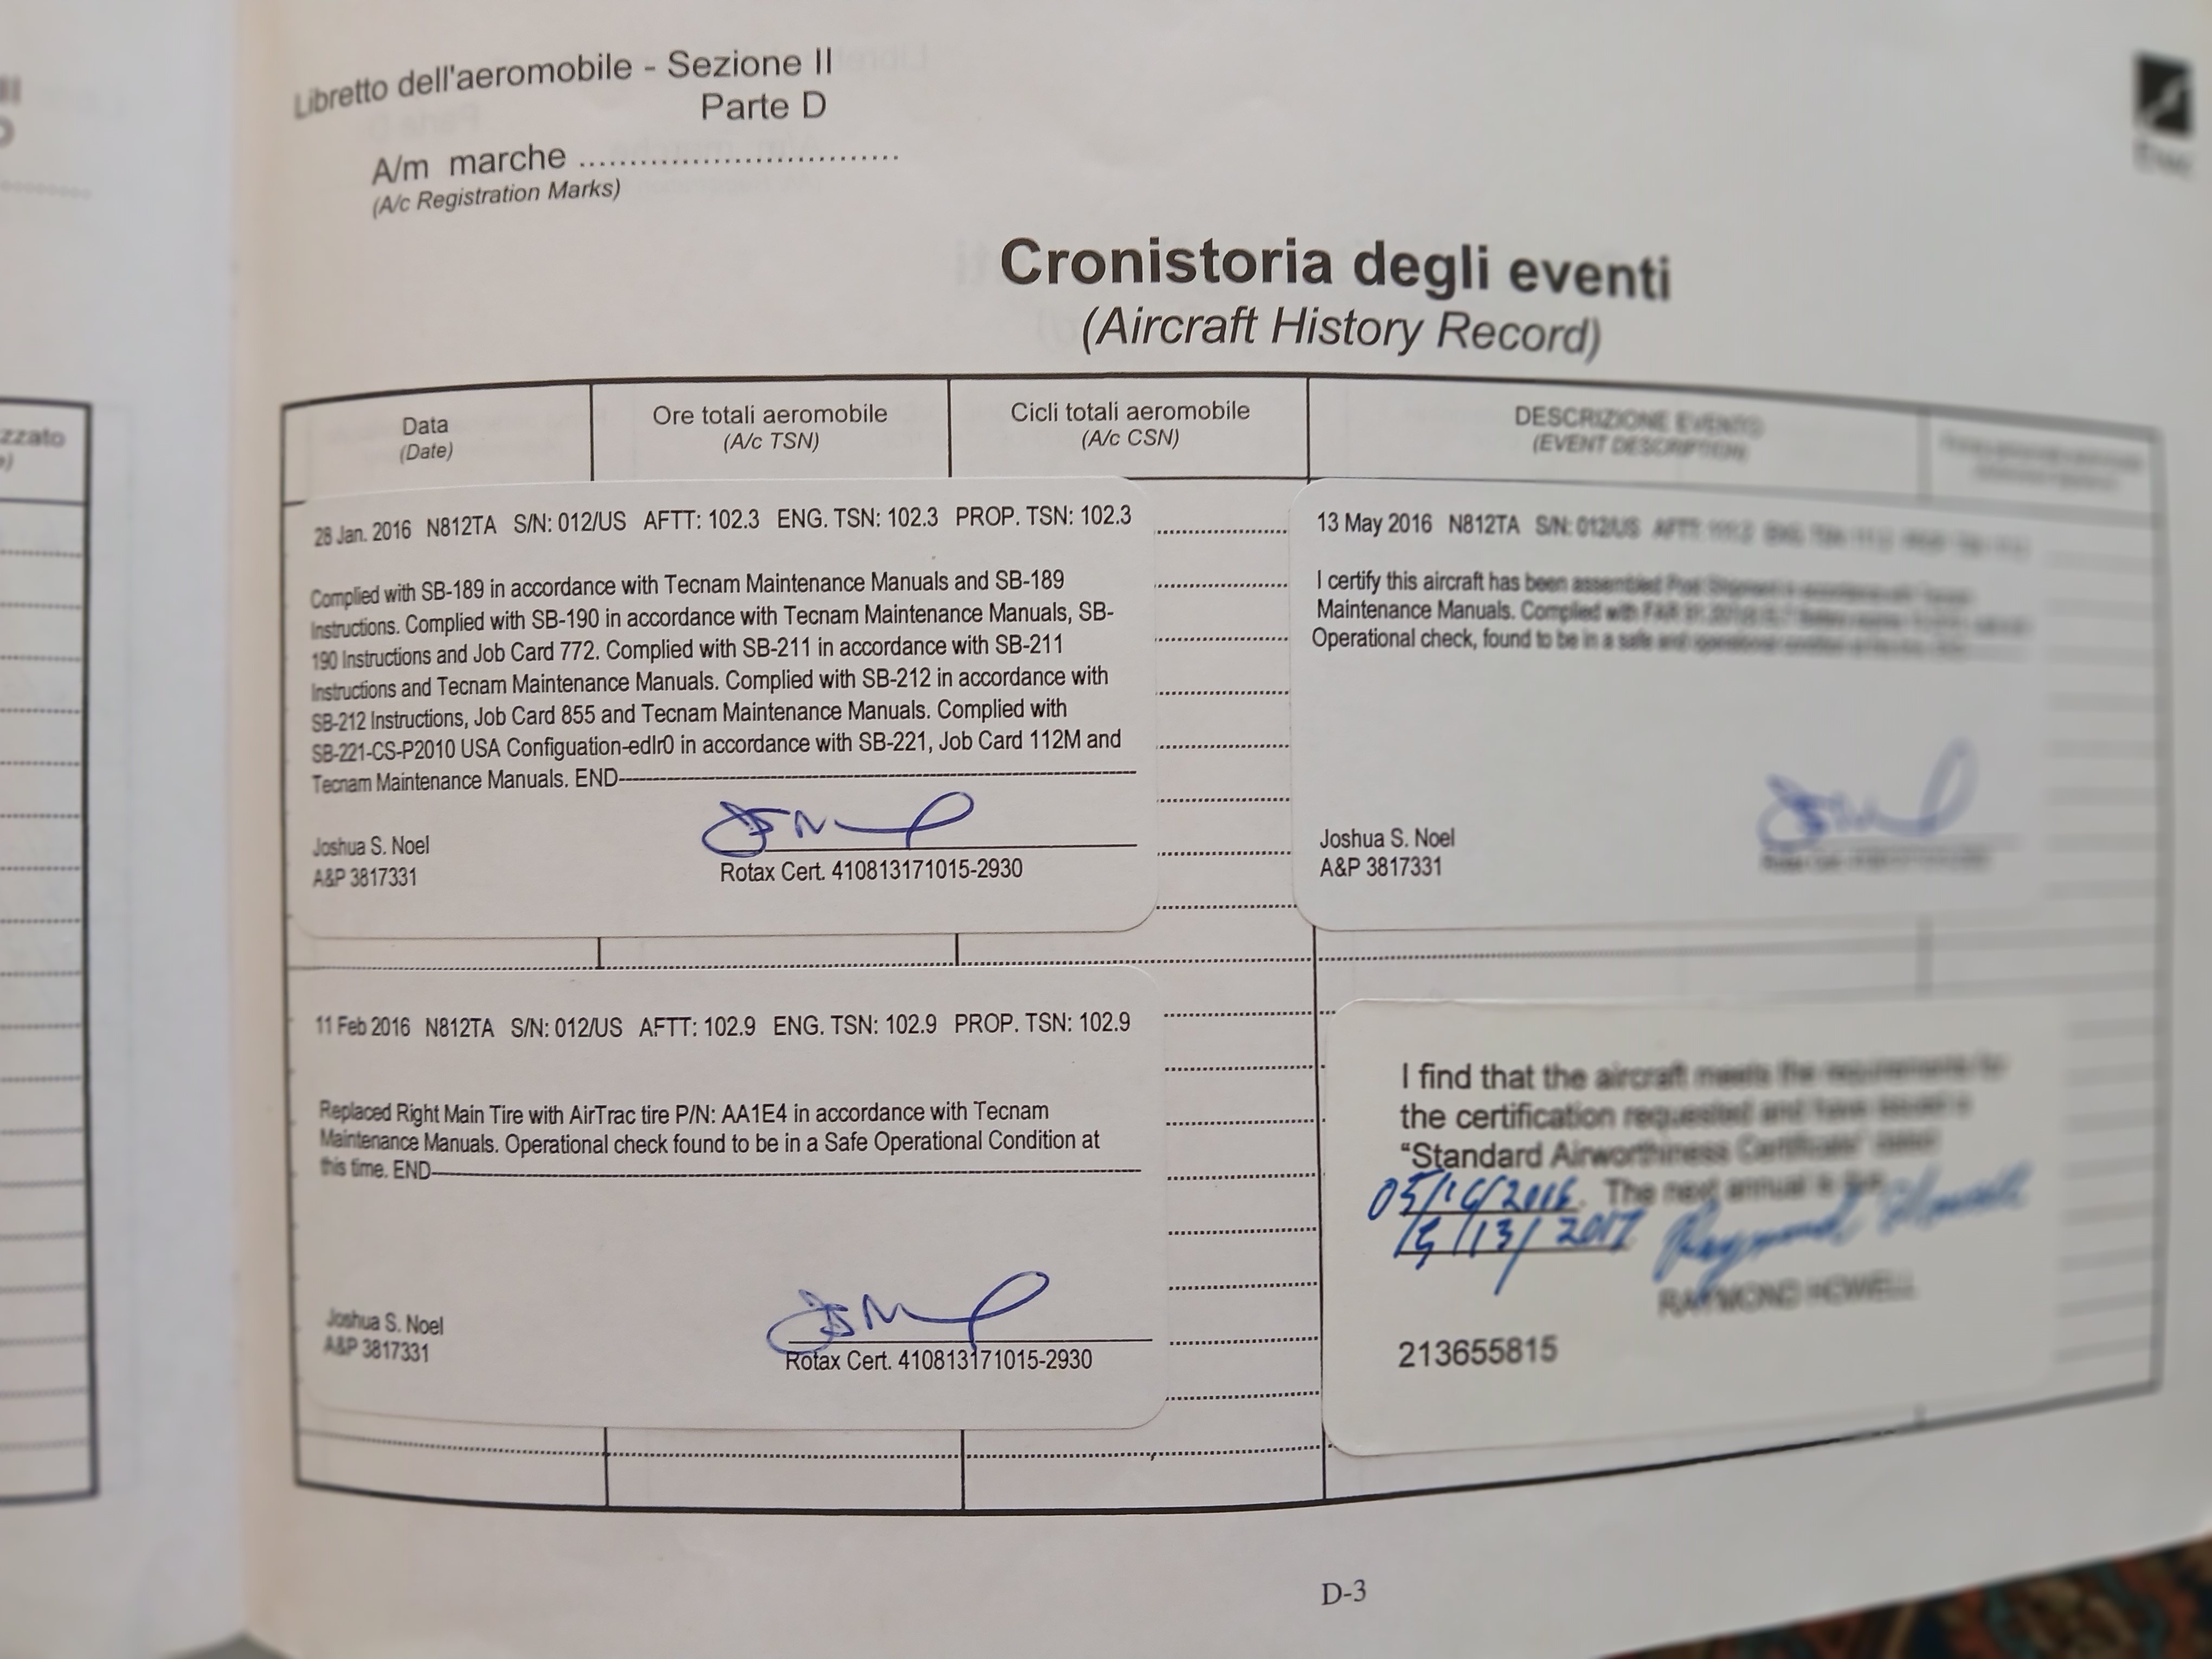 Libretto dell'aeromobile - Sezione II
Parte D
A/m marche ...............................
(A/c Registration Marks)
Cronistoria degli eventi
(Aircraft History Record)
zzato
Data
(Date)
Ore totali aeromobile
(A/c TSN)
Cicli totali aeromobile
(A/c CSN)
DESCRIZIONE EVENTO
(EVENT DESCRIPTION)
28 Jan. 2016 N812TA S/N: 012/US AFTT: 102.3 ENG. TSN: 102.3 PROP. TSN: 102.3
Complied with SB-189 in accordance with Tecnam Maintenance Manuals and SB-189
Instructions. Complied with SB-190 in accordance with Tecnam Maintenance Manuals, SB-
190 Instructions and Job Card 772. Complied with SB-211 in accordance with SB-211
Instructions and Tecnam Maintenance Manuals. Complied with SB-212 in accordance with
SB-212 Instructions, Job Card 855 and Tecnam Maintenance Manuals. Complied with
SB-221-CS-P2010 USA Configuation-edIr0 in accordance with SB-221, Job Card 112M and
Tecnam Maintenance Manuals. END
Joshua S. Noel
A&P 3817331
Rotax Cert. 410813171015-2930
11 Feb 2016 N812TA S/N: 012/US AFTT: 102.9 ENG. TSN: 102.9 PROP. TSN: 102.9
Replaced Right Main Tire with AirTrac tire P/N: AA1E4 in accordance with Tecnam
Maintenance Manuals. Operational check found to be in a Safe Operational Condition at
this time. END
Joshua S. Noel
A&P 3817331
Rotax Cert. 410813171015-2930
13 May 2016 N812TA S/N: 012/US AFTT:
I certify this aircraft has been assembled Post Shipment in accordance with
Maintenance Manuals. Complied with FAR
Operational check, found to be in a safe and operational condition
Joshua S. Noel
A&P 3817331
I find that the aircraft meets the requirements for
the certification requested and have issued a
“Standard Airworthiness Certificate” dated
05/16/2016. The next annual is due
5/13/2017
RAYMOND HOWELL
213655815
D-3